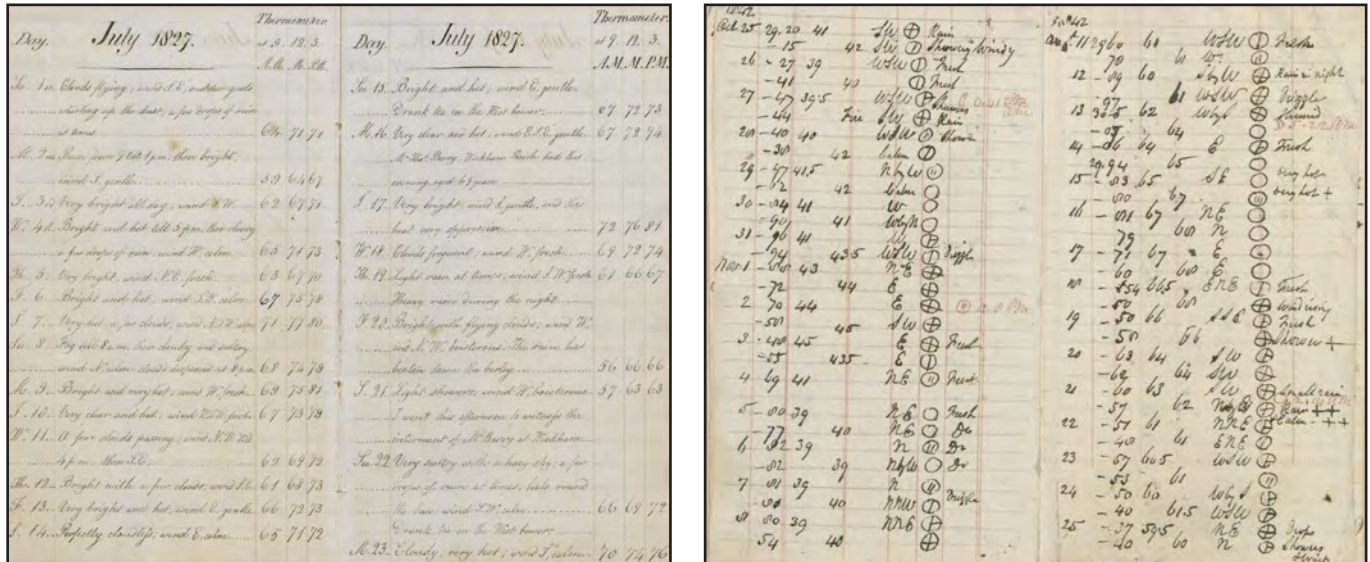 Thermometer
Day. July 1827. at 9. 12. 3.
A.M. M. P.M.
Su. 1st Clouds flying, wind S.E., sudden gusts
whirling up the dust, a few drops of rain
at times 64 71 71
M. 2nd Rain from 9 till 1 p.m. then bright,
wind S. gentle 59 64 67
T. 3rd Very bright all day, wind S.W. 62 67 71
W. 4th Bright and hot till 3 p.m. then cloudy
a few drops of rain, wind W, calm 65 71 73
Th. 5. Very bright, wind N.E. fresh 63 67 70
F. 6. Bright and hot, wind calm 67 75 78
S. 7. Very hot, a few clouds, wind 71 77 80
Su. 8 Fog till 8 a.m. then cloudy and sultry
wind N. calm: clouds dispersed at 8 p.m. 68 74 79
M. 9. Bright and very hot, wind W, fresh 69 75 81
T. 10. Very clear and hot; wind fresh 67 73 79
W. 11. A few clouds passing, wind
4 p.m. then S.E. 62 69 72
Th. 12. Bright with a few clouds; wind 61 68 73
F. 13. Very bright and hot, wind E, gentle 66 72 73
S. 14. Perfectly cloudless; wind E, calm 65 71 72
Thermometer.
Day. July 1827. at 9. 12. 3.
A.M. M. P.M.
Su 15. Bright and hot, wind E, gentle.
Drank tea in the Mist bower. 67 72 73
M. 16. Very clear and hot; wind E.S.E. gentle 67 72 74
Mr Thos Barry, Wickham Bush died this
evening, aged 69 years
T. 17. Very bright, wind S, gentle, and the
heat very oppressive 72 76 81
W. 18. Clouds frequent; wind W. fresh 69 72 74
Th. 19. Light rain at times, wind S.W. fresh 61 66 67
Heavy rain during the night.
F. 20. Bright with flying clouds; wind W.
and N.W. boisterous. The rain has
beaten down the barley 56 66 66
S. 21. Light showers, wind W, boisterous 57 63 63
I went this afternoon to witness the
interment of Mr Barry at Wickham
Su. 22. Very sultry with a hazy sky; a few
drops of rain at times, halo round
the sun, wind S.W. calm 66 69 72
Drank tea in the Mist bower.
M. 23. Cloudy; very hot; wind S, calm 70 74 76
1842
Oct 25 29.20 41 SW Rain
-15 42 SW Showery Windy
26 -27 39 WSW Fresh
-41 40 Fresh
27 -47 39.5 WSW Showers
-44 Fire SW Rain
28 -40 40 WSW Showers
-38 42 Calm
29 -47 41.5 NbyW
-62 42 Calm
30 -84 41 W
-90 41 WbyN
31 -96 41
-94 43.5 WSW Drizzle
Nov 1 -88 43 NE
-72 44 E
2 70 44 E
-50 45 SW
3 -48 45 E Fresh
-55 43.5 E
4 69 41 NE Fresh
5 -80 39 NE Fresh
-77 40 NE Do
6 82 39 N Do
-82 39 NbyW Do
7 -81 39 N
-80 40 NNW Drizzle
8 80 39 NNE
54 40
1842
Augt 11 29 60 61 WSW Fresh
70 61 W.
12 -89 60 SbyW Rain in night
-97 61 WSW Drizzle
13 62 WbyS Humid
64
14 -06 64 E Fresh
29.94 65
15 -83 65 SE very hot
-80 67 very hot +
16 -81 67 NE
79 68 N
17 -71 67 E
60 68 E
18 -54 66.5 ENE Fresh
-50 68 Wind rising
19 -50 66 SSE Fresh
-58 66 Shower +
20 -63 64 SW
-62 64 SW
21 -60 63 SW Small rain
-57 62 Rain ++
22 -51 61 NNE Calm - ++
-40 61 ENE
23 -57 60.5 WSW
-53 61
24 -50 60 WbyS
-40 61.5 WSW
25 -37 59.5 NE Drops
-40 60 N Showers